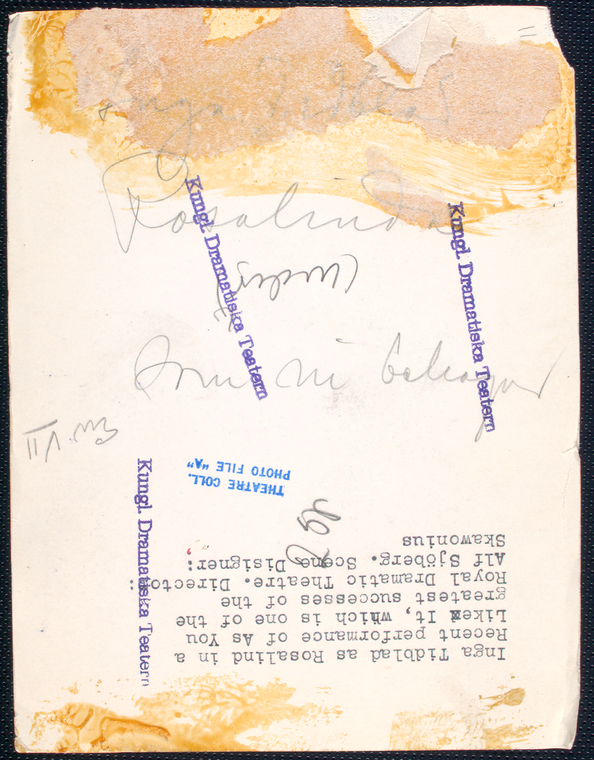 Inga Tidblad
Rosalinda
(under
Som ni behagar
Kungl. Dramatiska Teatern
Kungl. Dramatiska Teatern
Kungl. Dramatiska Teatern
THEATRE COLL.
PHOTO FILE "A"
Inga Tidblad as Rosalind in a
Recent performance of As You
Like It, which is one of the
greatest successes of the
Royal Dramatic Theatre. Director:
Alf Sjöberg. Scene Disigner:
Skawonius